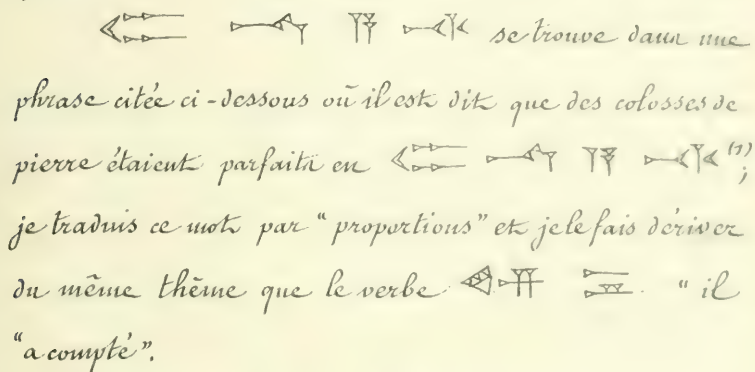 𒈪 𒈾 𒀀 𒋾 se trouve dans une
phrase citée ci-dessous où il est dit que des colosses de
pierre étaient parfaits en 𒈪 𒈾 𒀀 𒋾 (1);
je traduis ce mot par "proportions" et je le fais dériver
du même thême que le verbe "il
"a compté".